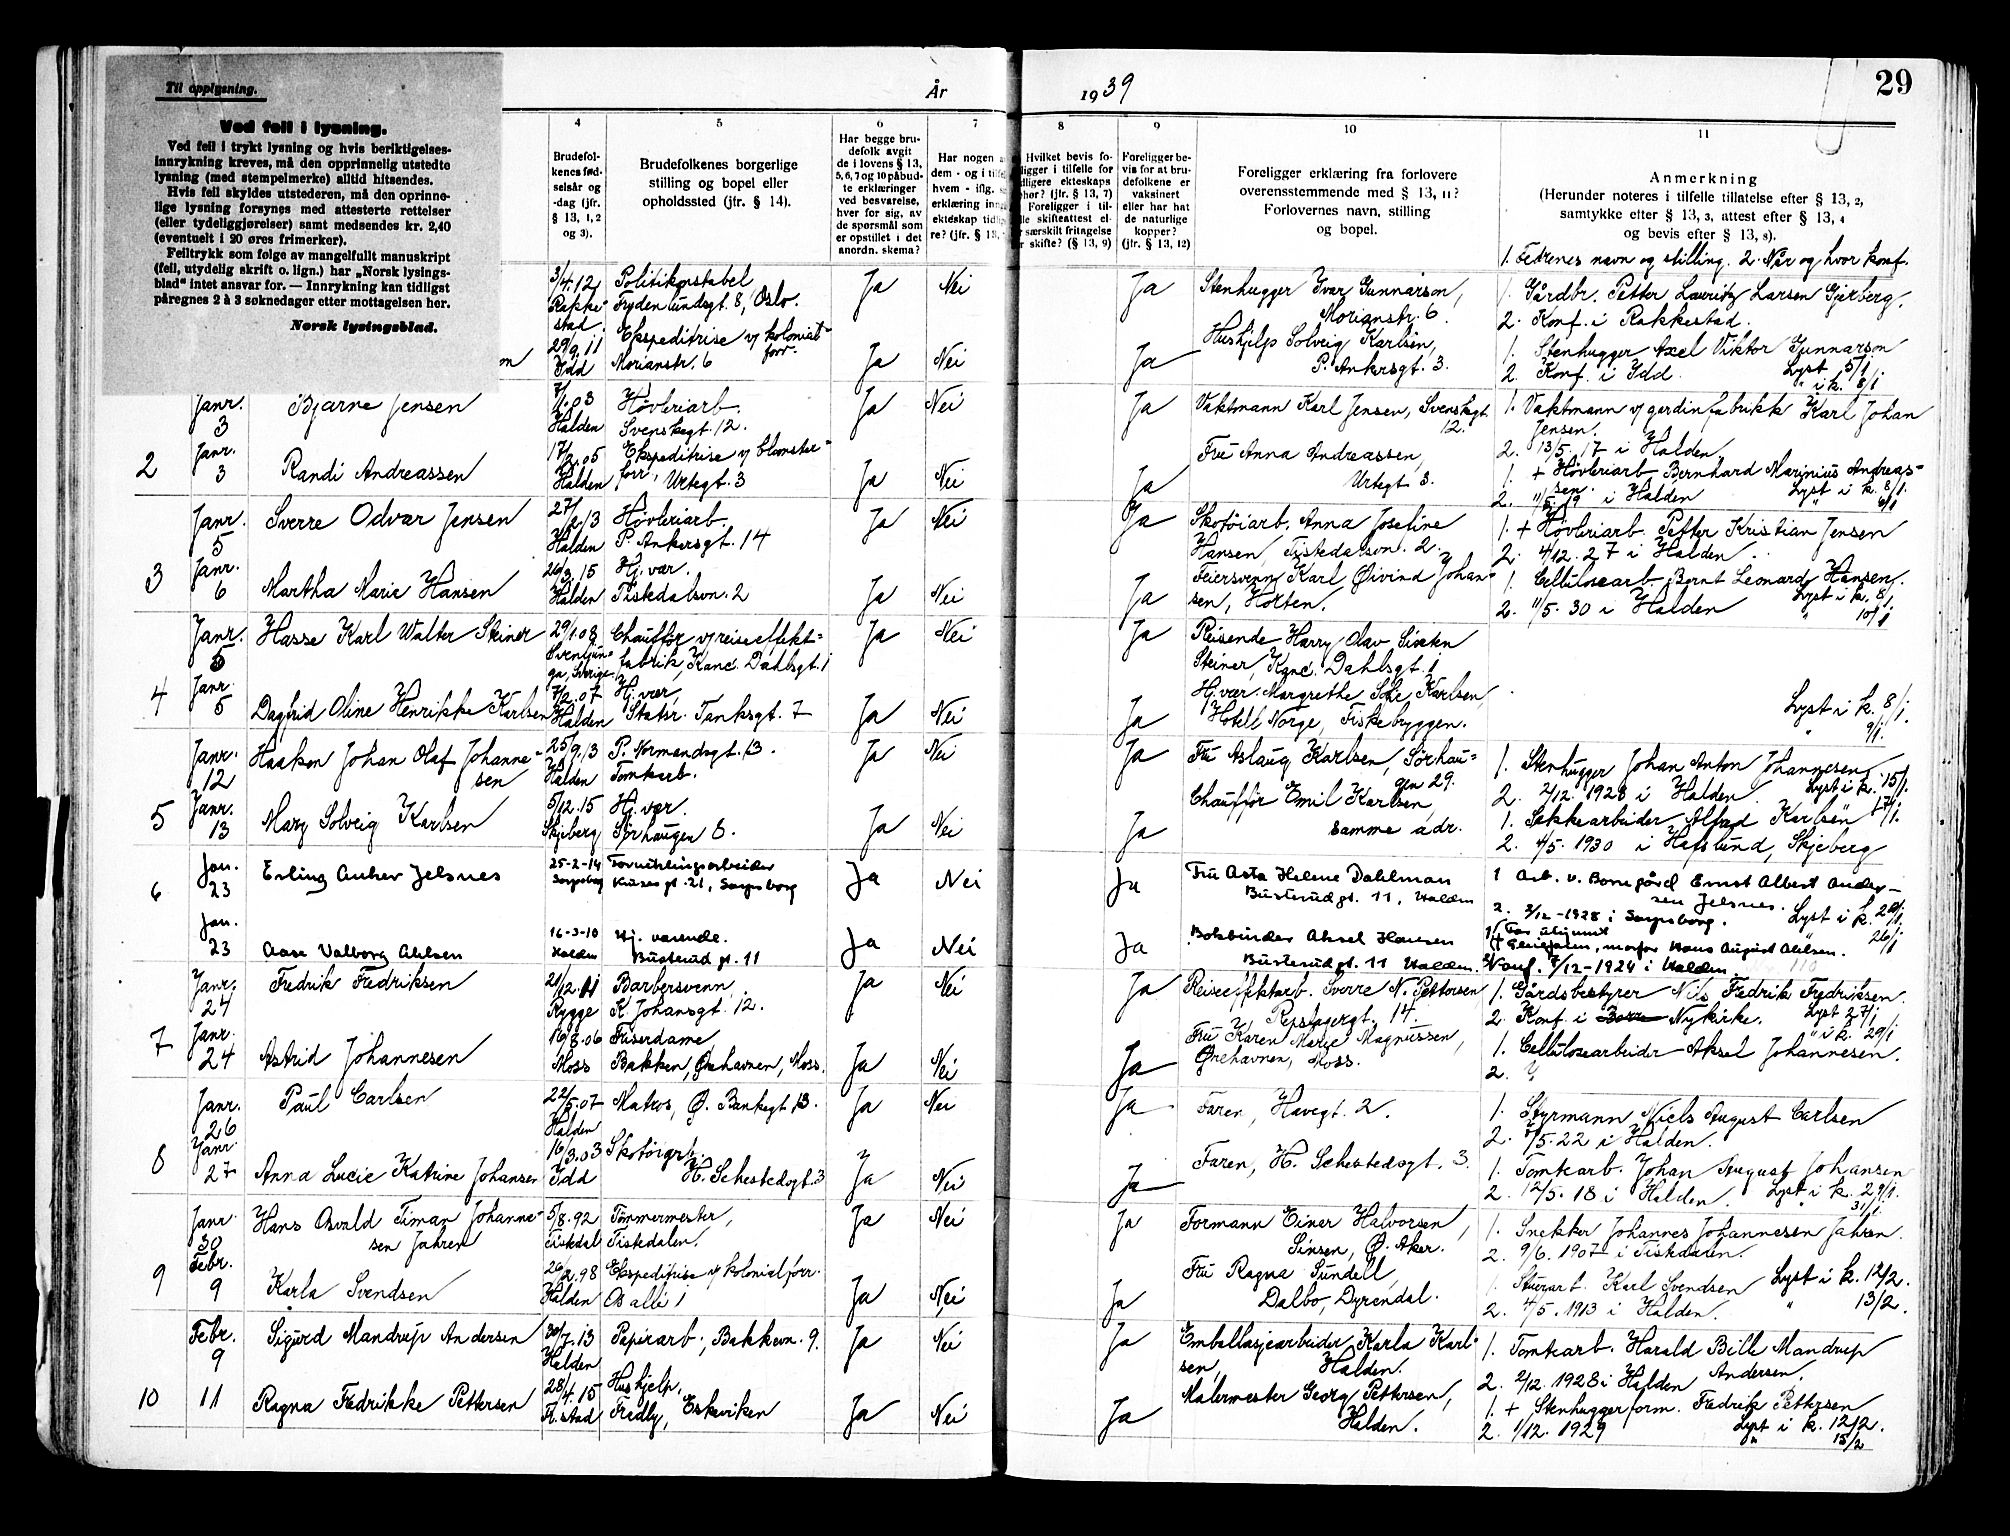 Til opplysning.
Ved feil i lysning.
Ved feil i trykt lysning og hvis beriktigelses-
innrykning kreves, må den opprinnelig utstedte
lysning (med stempelmerke) alltid hitsendes.
Hvis feil skyldes utstederen, må den oprinne-
lige lysning forsynes med attesterte rettelser
(eller tydeliggjørelser) samt medsendes kr. 2,40
(eventuelt i 20 øres frimerker).
Feiltrykk som følge av mangelfullt manuskript
(feil, utydelig skrift o. lign.) har „Norsk lysings-
blad" intet ansvar for. — Innrykning kan tidligst
påregnes 2 à 3 søknedager etter mottagelsen her.
Norsk lysingsblad.
År 1939
29
4
Brudefol-
kenes fød-
selsår og
-dag (jfr.
§ 13, 1, 2
og 3).
5
Brudefolkenes borgerlige
stilling og bopel eller
opholdssted (jfr. § 14).
6
Har begge bru-
defolk avgit
de i lovens § 13,
5, 6, 7 og 10 påbud-
te erklæringer
ved besvarelse,
hver for sig, av
de spørsmål som
er opstillet i det
anordn. skema?
7
Har nogen a
dem - og i tilfe
hvem - iflg. s
erklæring inng
ekteskap tidlig
re? (jfr. § 13,
8
Hvilket bevis fo-
ligger i tilfelle for
dligere ekteskaps
hør? (jfr. § 13, 7)
Foreligger i til-
le skifteattest el-
r særskilt fritagelse
r skifte? (§ 13, 9)
9
Foreligger be-
vis for at bru-
defolkene er
vaksinert
eller har hat
de naturlige
kopper?
(jfr. § 13, 12)
10
Foreligger erklæring fra forlovere
overensstemmende med § 13, 11?
Forlovernes navn, stilling
og bopel.
11
Anmerkning
(Herunder noteres i tilfelle tillatelse efter § 13, 2,
samtykke efter § 13, 3, attest efter § 13, 4
og bevis efter § 13, 8).
1. Fedrenes navn og stilling. 2. Når og hvor konf.
3/4.12 Politikonstabel Ja Nei Ja Stenhugger Ivar Gunnarson, 1. Gårdbr. Petter Lauritz Larsen Gjerberg.
Rakke- Frydenlundsgt. 8, Oslo. Morianstr. 6. 2. Konf. i Rakkestad.
stad.
29/9.11 Ekspeditrise v/ kolonial- Hushjelp Solveig Karlsen, 1. Stenhugger Axel Viktor Gunnarson
forr.
Idd Morianstr. 6 Ja Nei Ja P. Ankersgt. 3. 2. Konf. i Idd. Lyst 5/1
" i k. 8/1
Janr. 3 Bjarne Jensen 7/1.03 Høvleriarb. Ja Nei Ja Vaktmann Karl Jensen, Svenskegt. 12. 1. Vaktmann v/ gardinfabrikk Karl Johan
Halden Svenskegt. 12. Jensen.
2. 13/5. 17 i Halden
2 Janr. 3 Randi Andreassen 17/2.05 Ekspeditrise v/ blomster- Fru Anna Andreassen, 1. + Høvleriarb. Bernhard Marinius Andreas-
Halden forr, Urtegt. 3 Ja Nei Ja Urtegt. 3. sen. Lyst i k. 8/1.
2. 11/5 19 i Halden
Janr. 5 Sverre Odvar Jensen 27/2.13 Høvleriarb. Ja Nei Ja Skotøiarb. Anna Josefine 1. + Høvleriarb. Petter Kristian Jensen
Halden P. Ankersgt. 14 Hansen, Tistedalsvn. 2. 2. 4/12. 27 i Halden.
3 Janr. 6 Martha Marie Hansen 26/3.15 Hj. vær. Feiersvenn Karl Øivind Johan- 1. Cellulosearb. Bernt Leonard Hansen.
Halden Tistedalsvn. 2 Ja Nei Ja sen, Horten. 2. 11/5. 30 i Halden Lyst i k. 8/1
" 10/1
Janr. 5 Hasse Karl Walter Steiner 29/1.08 Chauffør v/ reiseeffekt- Ja Nei Ja Reisende Harry Olav Sixten
Svenljun- fabrik, Kanc. Dahlsgt. 1 Steiner, Kanc. Dahlsgt. 1
ga, Sverige.
4 Janr. 5 Dagfrid Oline Henrikke Karlsen 7/2.07 Hj. vær, Hj. vær. Margrethe Karlsen,
Halden Statsr. Tanksgt. 7 Ja Nei Ja Hotell Norge, Fiskebryggen. Lyst i k. 8/1.
" 9/1.
Janr. 12 Haakon Johan Olaf Johanne- 25/9.13 P. Normandsgt. 13. Ja Nei Ja Fru Aslaug Karlsen, Sørhau- 1. Stenhugger Johan Anton Johannesen
sen Halden Tomtearb. gen 29. 2. 2/12. 1928 i Halden. Lyst i k. 15/1.
5 Janr. 13 Mary Solveig Karlsen 5/12.15 Hj. vær. Chauffør Emil Karlsen, 1. Sekkearbeider Alfred Karlsen 17/1.
Skjeberg Sørhaugen 8. Ja Nei Ja samme adr. 2. 4/5. 1930 i Hafslund, Skjeberg
6 Jan. 23 Erling Anker Jelsnes 25-2-14 Forniklingsarbeider Ja Nei Ja Fru Asta Helene Dahlman 1 Arb. v. Borregård Ernst Albert Ander-
Sarpsborg Kirkegt. 21, Sarpsborg Busterudgt. 11, Halden sen Jelsnes.
2. 2/12-1928 i Sarpsborg. Lyst i k.
Jan. 23 Aase Valborg Ahlsen 16-3-10 Hj. værende. Ja Nei Ja Bokbinder Aksel Hansen 1. Far ukjent 26/1
Halden Busterudgt. 11 Busterudgt. 11 Halden. morfar Hans August Ahlsen.
Konf. 7/12-1924 i Halden
Janr. 24 Fredrik Fredriksen 21/12.11 Barbersvenn Ja Nei Ja Reiseeffektarb. Sverre N. Pettersen 1. Gårdsbestyrer Nils Fredrik Fredriksen.
Rygge K. Johansgt. 12. Repslagergt. 14. 2. Konf. i Borre Nykirke. Lyst 27/1
" i k. 29/1
7 Janr. 24 Astrid Johannesen 16/8.06 Friserdame, Fru Karen Marie Magnussen, 1. Cellulosearbeider Aksel Johannesen.
Moss Bakken, Ørehavnen, Moss. Ja Nei Ja Ørehavnen, Moss. 2. ?
Janr. 26 Paul Carlsen 22/5.07 Matros, Ø. Bankegt. 13. Ja Nei Ja Faren, Havegt. 2. 1. Styrmann Niels August Carlsen
Halden 2. 7/5. 22 i Halden.
8 Janr. 27 Anna Lucie Katrine Johansen 16/3.03 Skotøiarb. Faren, H. Sehestedsgt. 3. 1. Tomtearb. Johan August Johansen
Idd H. Sehestedsgt. 3 Ja Nei Ja 2. 12/5. 18 i Halden. Lyst i k. 29/1.
" 31/1.
Janr. 30 Hans Osvald Timar Johanne- 5/8.92 Tømmermester, Ja Nei Ja Formann Einar Halvorsen, 1. Snekker Johannes Johannesen Jahren.
sen Jahren Tistedal Tistedalen. Sinsen, Ø. Aker. 2. 9/6. 1907 i Tistedalen.
9 Febr. 9 Karla Svendsen 26/2.98 Ekspeditrise v/ kolonialforr. Fru Ragna Sundell, 1. Stuerarb. Karl Svendsen Lyst i k. 12/2.
Halden Os allé 1 Ja Nei Ja Dalbo, Dyrendal. 2. 4/5. 1913 i Halden. " 13/2.
Febr. 9 Sigurd Mandrup Andersen 30/7.13 Papirarb., Bakkevn. 9. Ja Nei Ja Emballasjearbeider Karla Karl- 1. Tomtearb. Harald Bille Mandrup
Halden sen, Halden. Andersen.
2. 2/12. 1928 i Halden
10 11 Ragna Fredrikke Pettersen 28/4.15 Hushjelp, Malermester Georg Pettersen, 1. + Stenhuggerform. Fredrik Pettersen
Fr.stad Fredly, Eskeviken Ja Nei Ja Halden. 2. 1/12. 1929 Lyst i k. 12/2.
" 15/2